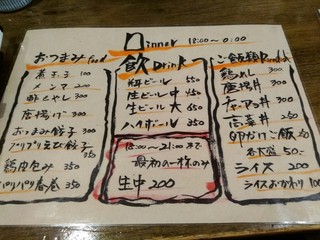 Dinner 18:00〜0:00
おつまみ food
煮玉子 100
メンマ 200
酢もやし 300
唐揚げ 300
おつまみ餃子 300
プリプリえび餃子 350
鶏皮包み 350
パリパリ春巻 350
飲 Drink
瓶ビール 550
生ビール 中 450
生ビール 大 650
ハイボール 350
18:00〜21:00まで
最初の一杯のみ
生中 200
ご飯類
鶏めし 300
唐揚丼 300
チャーマヨ丼 300
高菜丼 250
卵かけご飯
各大盛 50.-
ライス 200
ライスおかわり 100